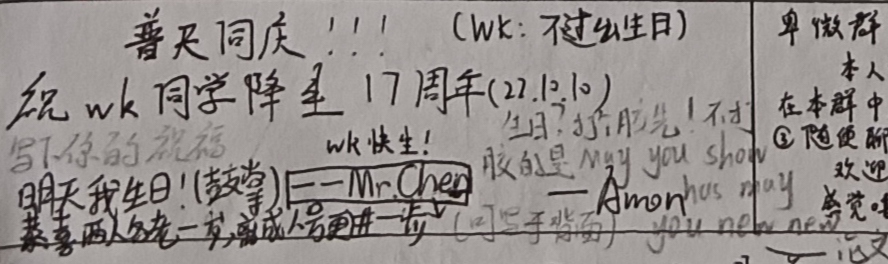 普天同庆!!! (wk: 不过出生日)
祝wk同学降圣17周年(22.10.10)
写下你的祝福
wk快生!
明天我生日!(鼓掌) ——Mr.Chen
恭喜两人各老一岁,离成人号更进一步
胶的是 May you show
——Amon has may
(可写于背面) you new new
卑微群
本人
在本群中
② 随便聊
欢迎